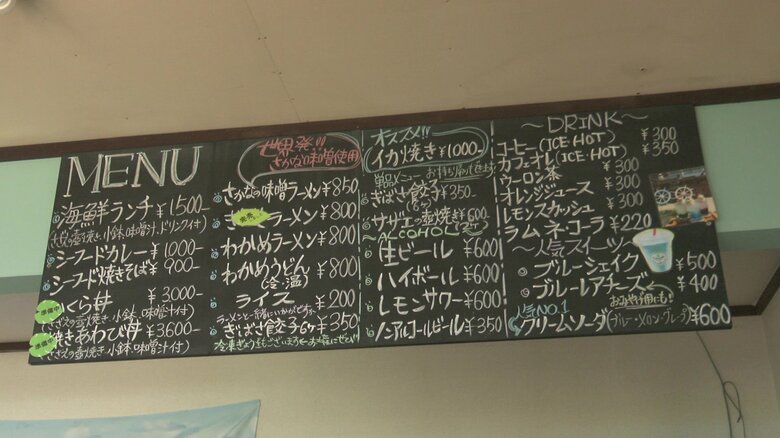 MENU
海鮮ランチ ¥1500-
さざえの壷焼き、小鉢、味噌汁、ドリンク付)
シーフードカレー ¥1000-
シーフード焼きそば ¥900-
準備中
いくら丼 ¥3000-
(さざえの壷焼き 小鉢、味噌汁付)
準備中
焼きあわび丼 ¥3600-
(さざえの壷焼き 小鉢 味噌汁付)
世界発!!
さかな味噌使用
さかなの味噌ラーメン ¥850
ラーメン ¥800
わかめラーメン ¥800
わかめうどん ¥800
(冷・温)
ライス ¥200
ラーメンと一緒にいかがですか
ぎばさ餃子6ヶ ¥350
オススメ!!
イカ焼き ¥1000-
単品メニュー お持ち帰り
ぎばさ餃子 ¥350-
サザエの壷焼き ¥600
~ALCOHOL~
生ビール ¥600
ハイボール ¥600
レモンサワー ¥600
ノンアルコールビール ¥350
~DRINK~
コーヒー(ICE・HOT) ¥300
カフェオレ(ICE・HOT) ¥350
ウーロン茶 ¥300
オレンジジュース ¥300
レモンスカッシュ ¥300
ラムネ・コーラ ¥220
~人気スイーツ~
ブルーシェイク ¥500
ブルーレアチーズ ¥400
お土産用にも!
人気NO.1
クリームソーダ(ブルー・メロン・グレープ) ¥600